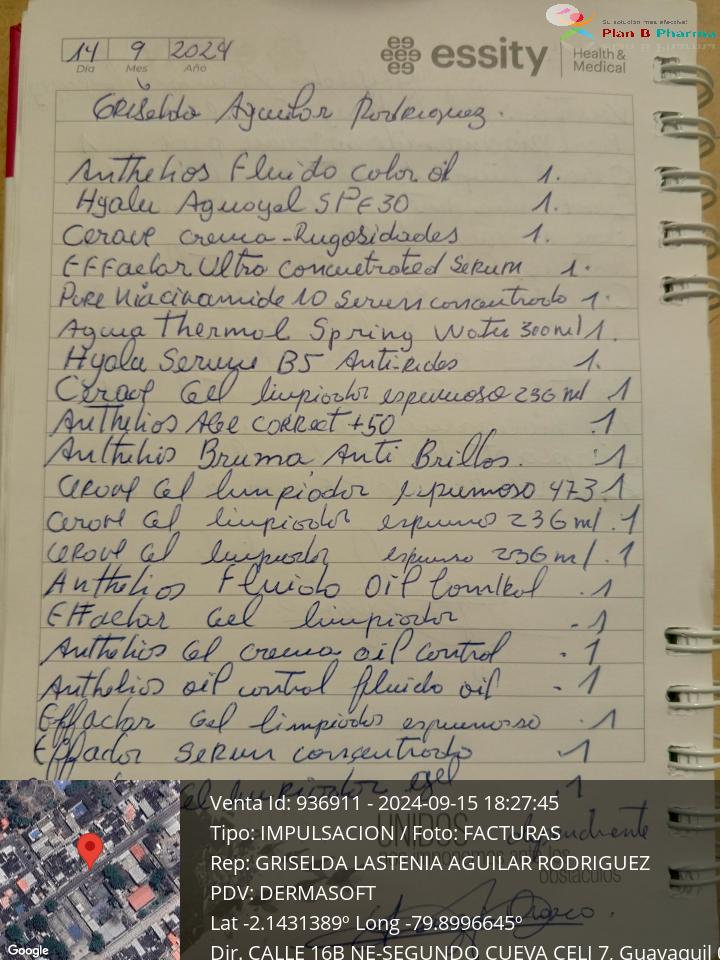 Su solución más efectiva!
Plan B Pharma
14 9 2024
Día Mes Año
essity Health & Medical
Griselda Aguilar Rodriguez.
Anthelios Fluido color oil 1.
Hyalu Aguagel SPF 30 1.
Cerave crema - Rugosidades 1.
Effaclar Ultra Concuetrated Serum 1.
Pure Niacinamide 10 Serum concentrado 1.
Agua Thermal Spring Water 300ml 1.
Hyalu Serum B5 Anti-Rides 1.
Cerave Gel limpiador espumoso 236 ml 1
Anthelios Age correct +50 .1
Anthelios Bruma Anti Brillos. .1
Cerave Gel limpiador espumoso 473.1
Cerave Gel limpiador espumo 236 ml .1
Cerave Gel limpiador espumo 236 ml .1
Anthelios Fluido Oil Control .1
Effaclar Gel limpiador .1
Anthelios Gel crema oil control .1
Anthelios oil control fluido oil .1
Effaclar Gel limpiador espumosso .1
Effaclar Serum concentrado .1
Gel limpiador .1
UNIDOS
obstáculos
Venta Id: 936911 - 2024-09-15 18:27:45
Tipo: IMPULSACION / Foto: FACTURAS
Rep: GRISELDA LASTENIA AGUILAR RODRIGUEZ
PDV: DERMASOFT
Lat -2.1431389º Long -79.8996645º
Dir. CALLE 16B NE-SEGUNDO CUEVA CELI 7, Guayaquil
Google